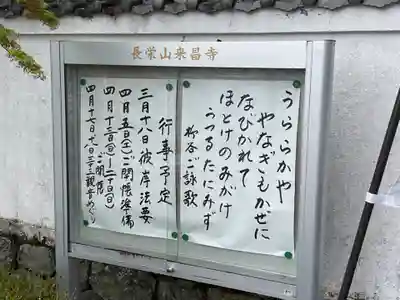 長栄山来昌寺
うららかや
やなぎもかぜに
なびかれて
ほとけのみかげ
うつるたにみず
柳谷ご詠歌
行事予定
三月十八日彼岸法要
四月五日(土)ご開帳準備
四月十三日(日)~二十日(日)
ご開帳
四月十七日、十八日三十三観音めぐり